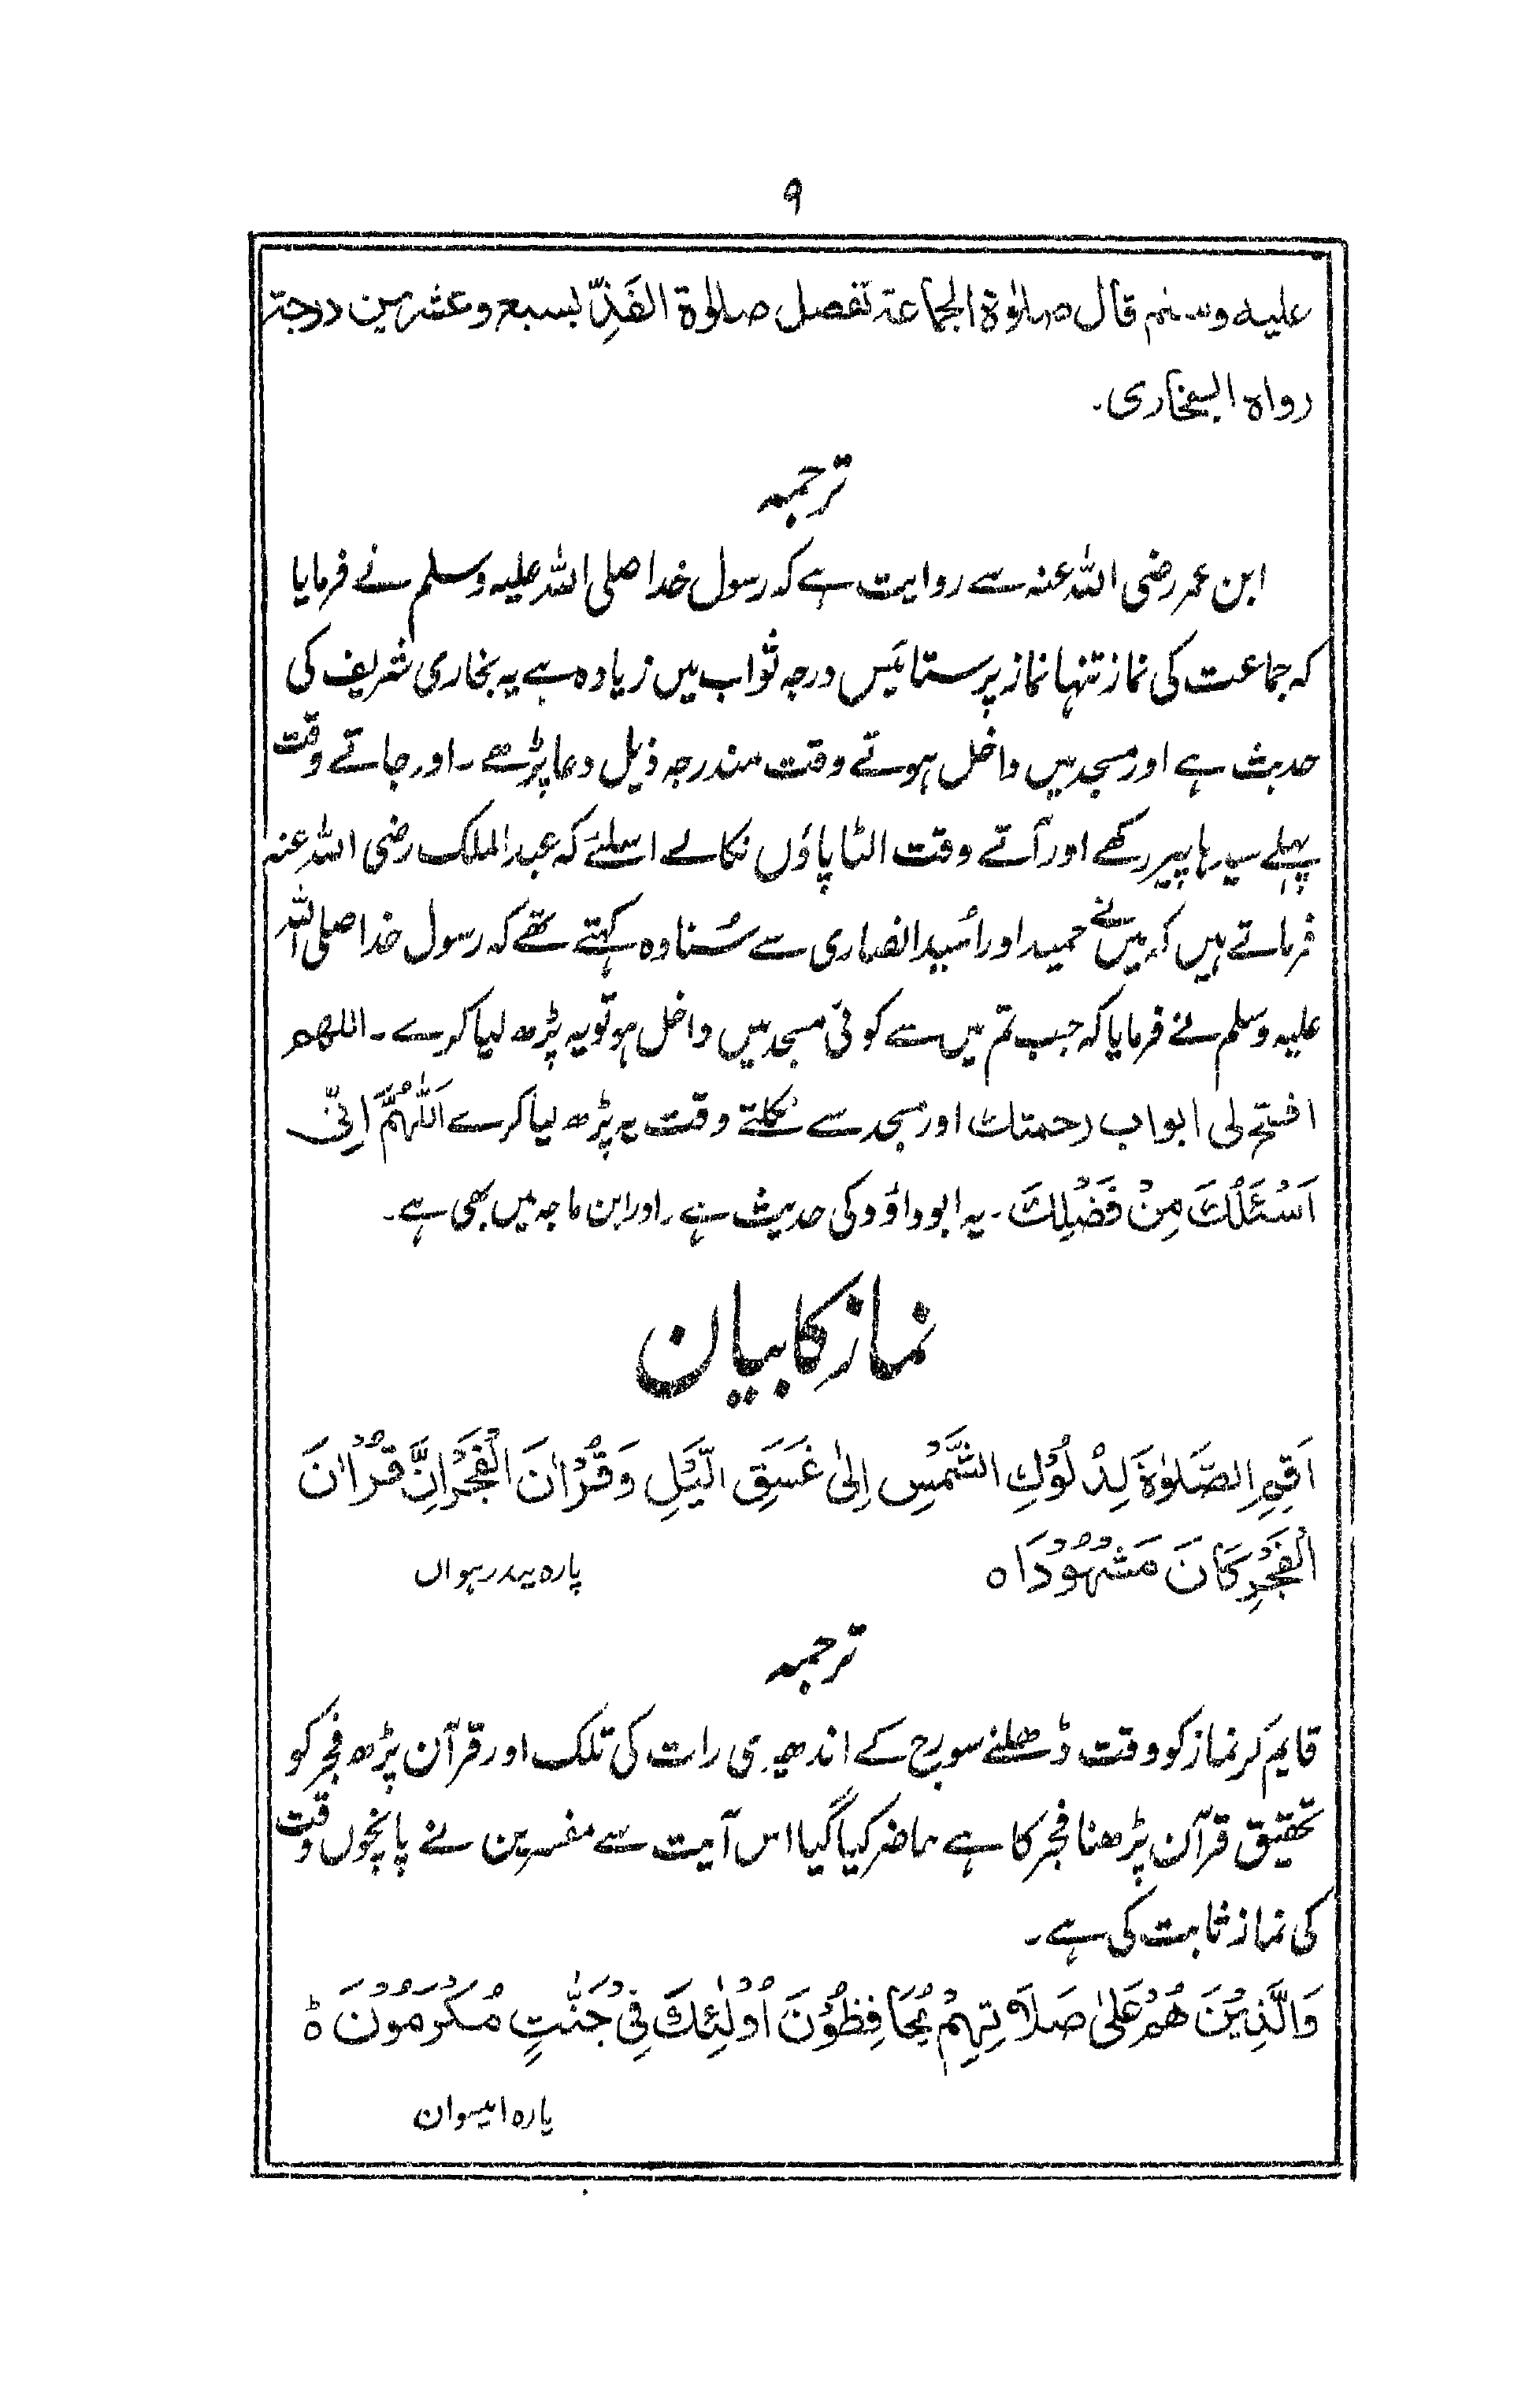 ۹
علیه وسلم قال صلوٰة الجماعة تفضل صلوٰة الفَذِّ بسبع وعشرین درجة
رواہ البخاری۔
ترجمہ
ابن عمر رضی اللہ عنہ سے روایت ہے کہ رسول خدا صلی اللہ علیہ وسلم نے فرمایا
کہ جماعت کی نماز تنہا نماز پر ستائیس درجہ ثواب میں زیادہ ہے یہ بخاری شریف کی
حدیث ہے اور مسجد میں داخل ہوتے وقت مندرجہ ذیل دعا پڑھے۔ اور جاتے وقت
پہلے سیدہا پیر رکھے اور آتے وقت الٹا پاؤں نکالے اسلئے کہ عبد الملک رضی اللہ عنہ
فرماتے ہیں کہ میں نے حمید اور اُسید انصاری سے سُنا وہ کہتے تھے کہ رسول خدا صلی اللہ
علیہ وسلم نے فرمایا کہ جب تم میں سے کوئی مسجد میں داخل ہو تو یہ پڑھ لیا کرے۔ اللھم
افتح لی ابواب رحمتک اور مسجد سے نکلتے وقت یہ پڑھ لیا کرے اَللّٰہُمَّ اِنِّی
اَسْئَلُکَ مِنْ فَضْلِکَ۔ یہ ابو داؤد کی حدیث ہے۔ اور ابن ماجہ میں بھی ہے۔
نماز کا بیان
اَقِمِ الصَّلوٰةَ لِدُلُوْکِ الشَّمْسِ اِلیٰ غَسَقِ الَّیْلِ وَقُرْاٰنَ الْفَجْرِ اِنَّ قُرْاٰنَ
الْفَجْرِ کَانَ مَشْہُوْدًا ہ پارہ پندرہواں
ترجمہ
قایم کر نماز کو وقت ڈھلنے سورج کے اندھیری رات کی تلک اور قرآن پڑھ فجر کو
تحقیق قرآن پڑھنا فجر کا ہے حاضر کیا گیا اس آیت سے مفسرین نے پانچوں وقت
کی نماز ثابت کی ہے۔
وَالَّذِیْنَ ھُمْ عَلیٰ صَلَاتِہِمْ یُحَافِظُوْنَ اُوْلٰئِکَ فِیْ جَنّٰتٍ مُکْرَمُوْنَ ہ
پارہ انیسوان